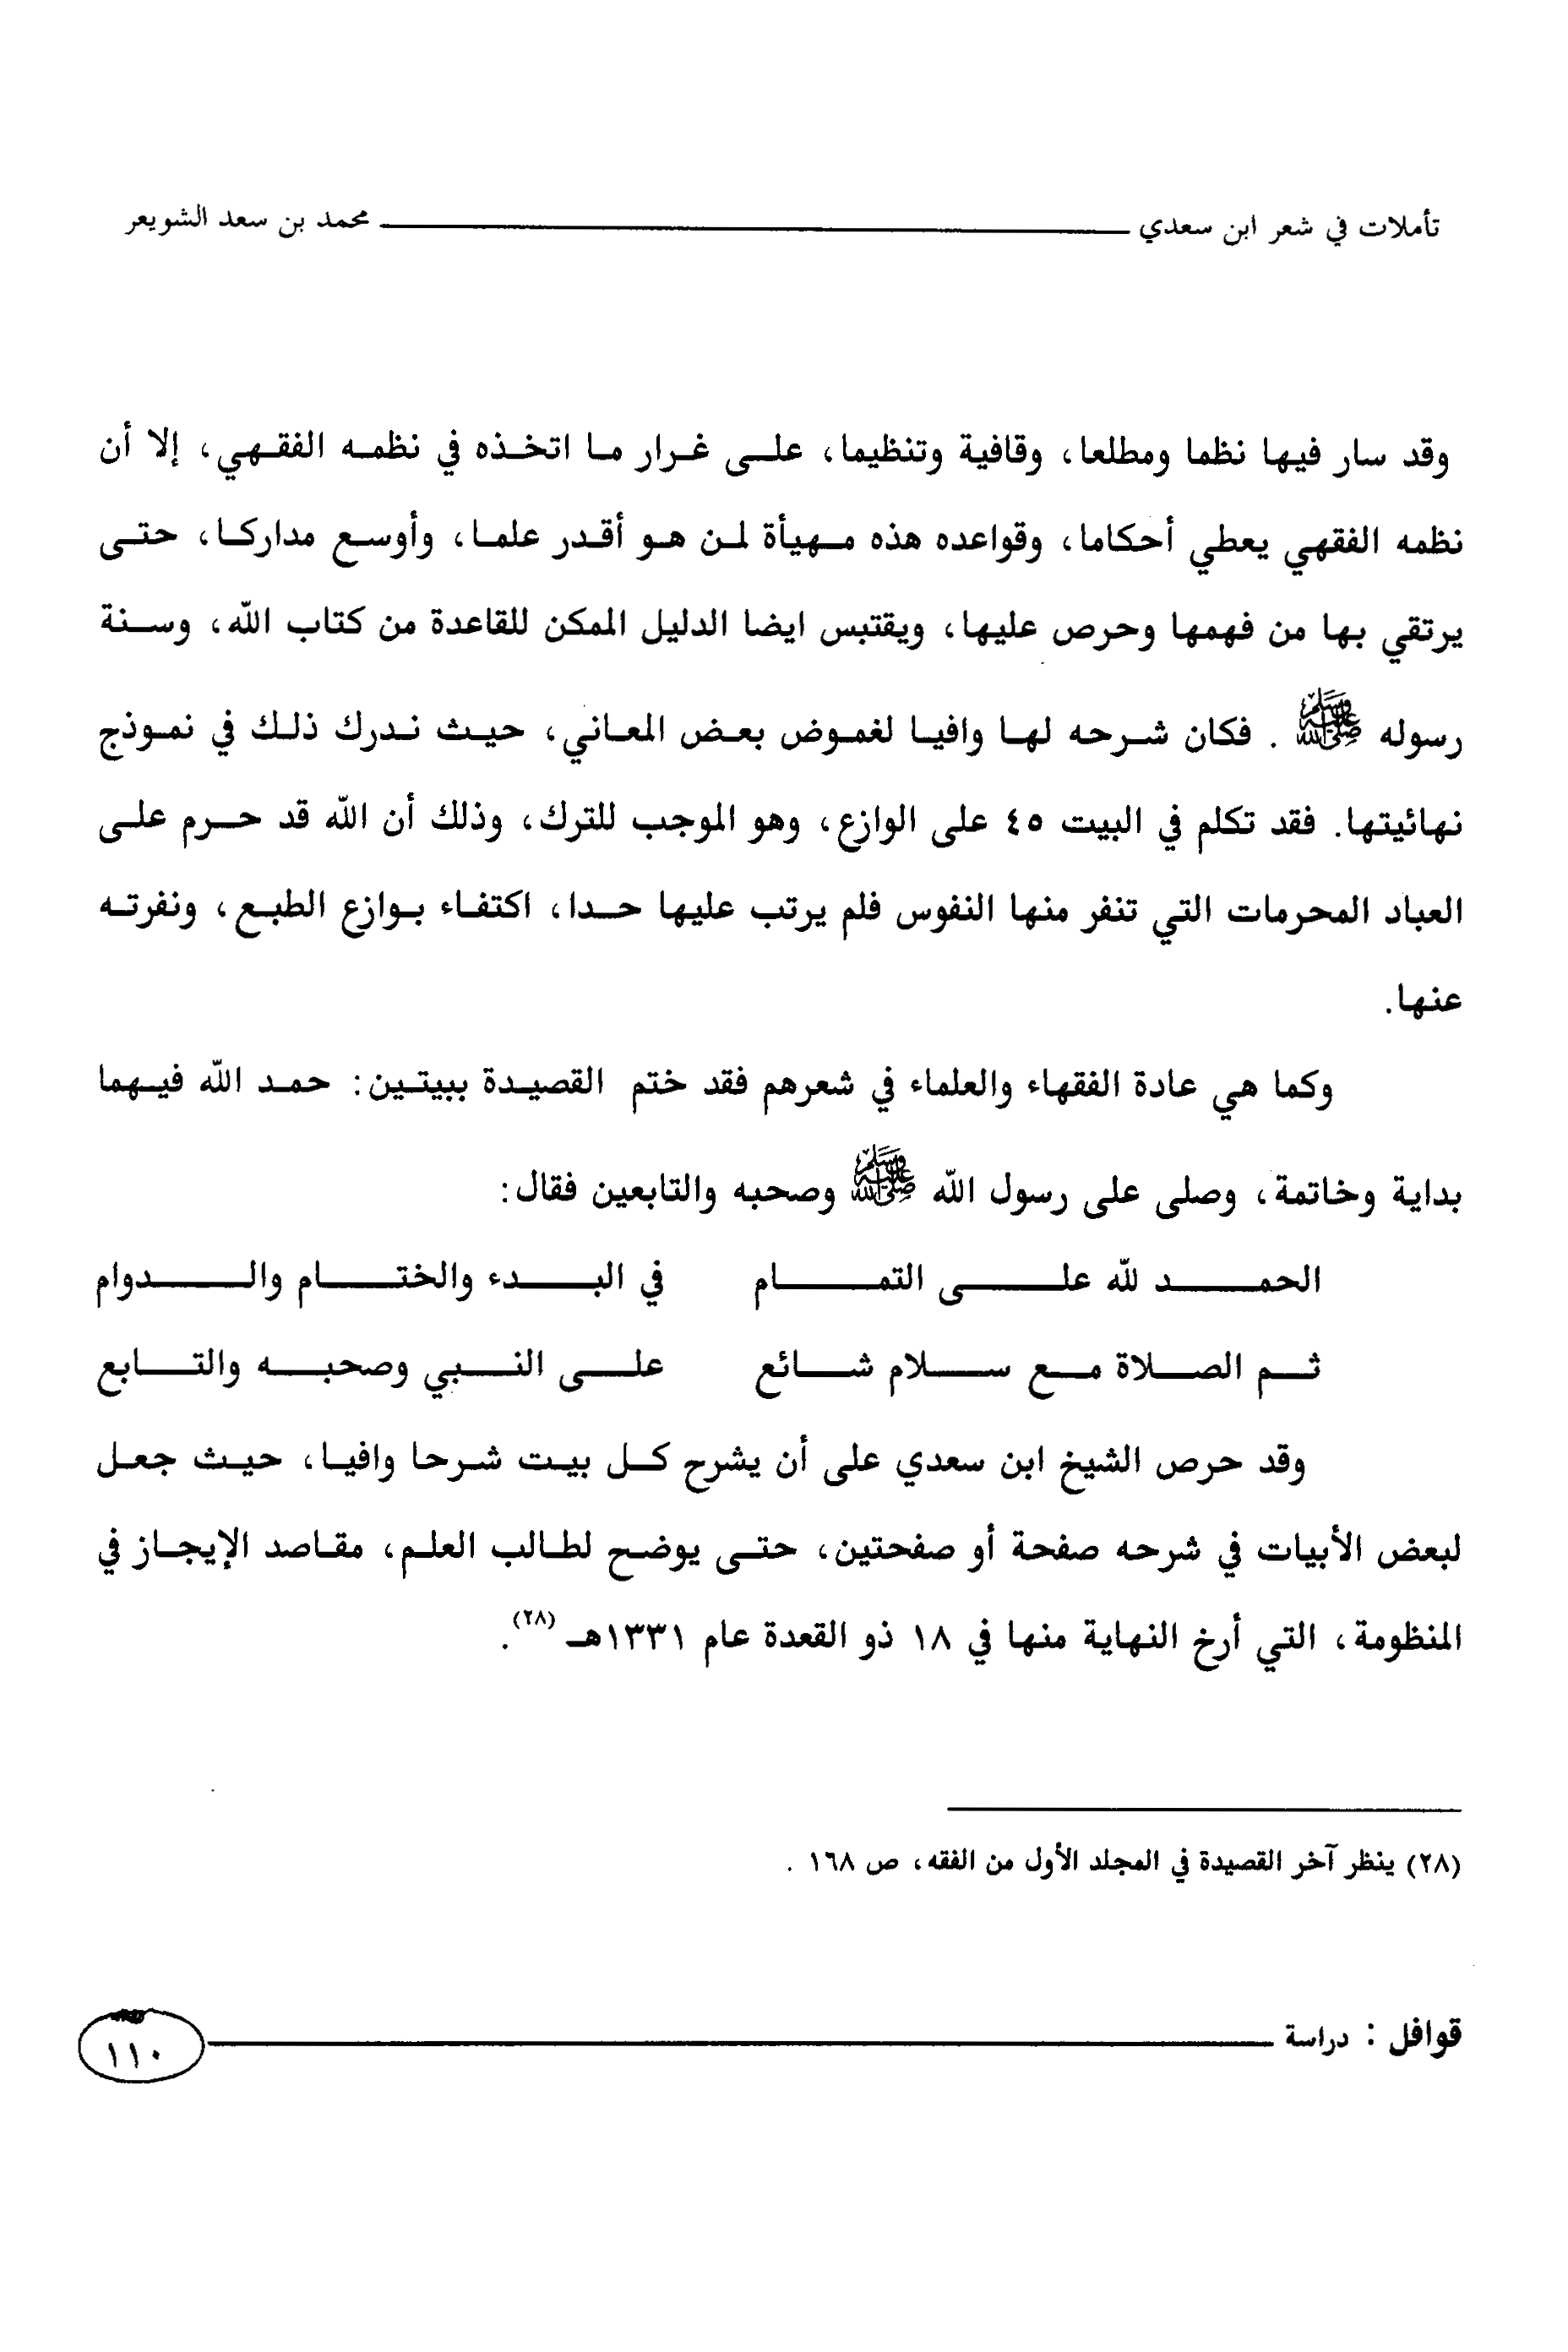 تأملات في شعر ابن سعدي ـــــــــ محمد بن سعد الشويعر
وقد سار فيها نظما ومطلعا، وقافية وتنظيما، على غرار ما اتخذه في نظمه الفقهي، إلا أن
نظمه الفقهي يعطي أحكاما، وقواعده هذه مهيأة لمن هو أقدر علما، وأوسع مداركا، حتى
يرتقي بها من فهمها وحرص عليها، ويقتبس ايضا الدليل الممكن للقاعدة من كتاب الله، وسنة
رسوله ﷺ . فكان شرحه لها وافيا لغموض بعض المعاني، حيث ندرك ذلك في نموذج
نهائيتها. فقد تكلم في البيت ٤٥ على الوازع، وهو الموجب للترك، وذلك أن الله قد حرم على
العباد المحرمات التي تنفر منها النفوس فلم يرتب عليها حدا، اكتفاء بوازع الطبع، ونفرته
عنها.
وكما هي عادة الفقهاء والعلماء في شعرهم فقد ختم القصيدة ببيتين: حمد الله فيهما
بداية وخاتمة، وصلى على رسول الله ﷺ وصحبه والتابعين فقال:
الحمد لله على التمام في البدء والختام والدوام
ثم الصلاة مع سلام شائع على النبي وصحبه والتابع
وقد حرص الشيخ ابن سعدي على أن يشرح كل بيت شرحا وافيا، حيث جعل
لبعض الأبيات في شرحه صفحة أو صفحتين، حتى يوضح لطالب العلم، مقاصد الإيجاز في
المنظومة، التي أرخ النهاية منها في ١٨ ذو القعدة عام ١٣٣١هـ (٢٨).
(٢٨) ينظر آخر القصيدة في المجلد الأول من الفقه، ص ١٦٨ .
قوافل : دراسة ـــــــــ ١١٠